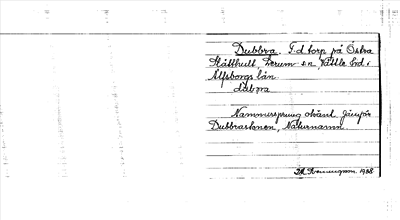 Dubbva. F.d torp på Östra
Slätthult, Lerum sn, Vättle hd.
Älfsborgs län.
Namnursprung okänt. Jämför
Dubbvastenen, Naturnamn.
1958